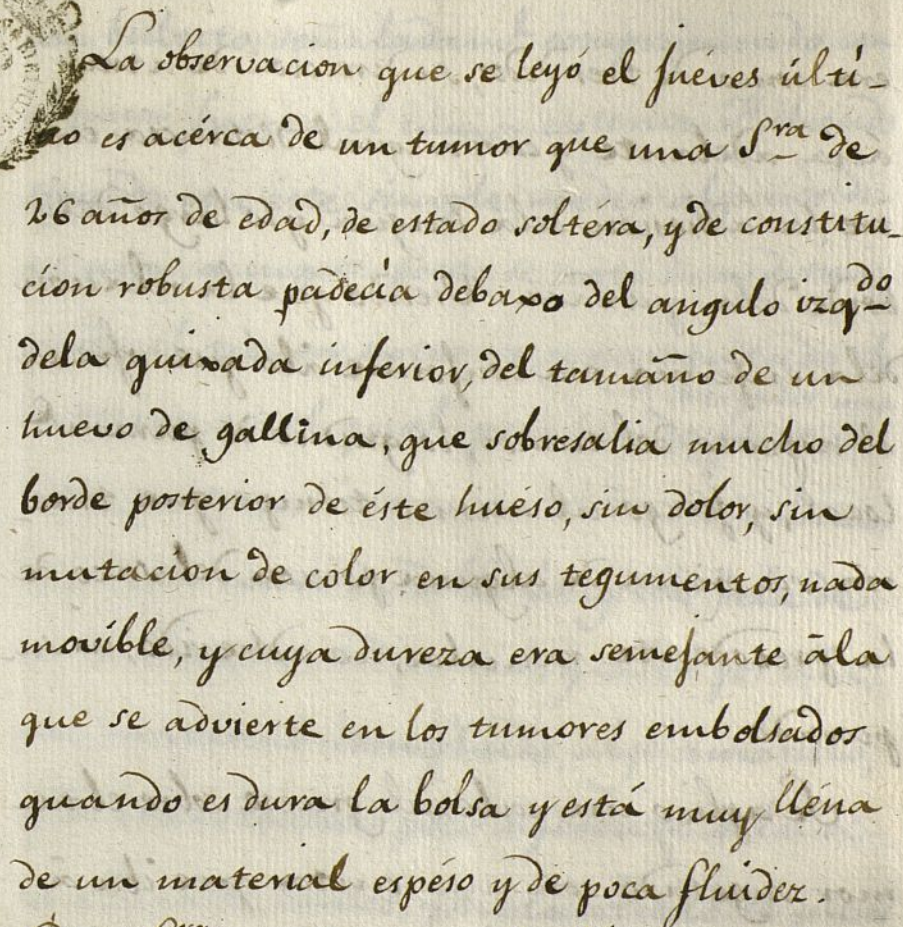 La observacion que se leyó el Juéves últi-
mo es acérca de un tumor que una Sra de
26 años de edad, de estado soltéra, y de constitu-
cion robusta padecía debaxo del angulo izqdo
dela quixada inferior, del tamaño de un
huevo de gallina, que sobresalia mucho del
borde posterior de éste huéso, sin dolor, sin
mutacion de color en sus tegumentos, nada
movible, y cuya dureza era semejante āla
que se advierte en los tumores embolsados
quando es dura la bolsa y está muy lléna
de un material espéso y de poca fluidez.